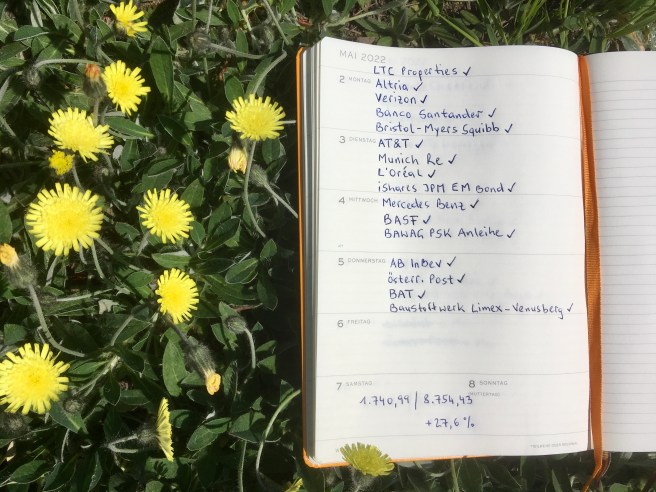 MAI 2022
LTC Properties ✓
2 MONTAG
Altria ✓
Verizon ✓
Banco Santander ✓
Bristol-Myers Squibb ✓
3 DIENSTAG
AT&T ✓
Munich Re ✓
L'Oréal ✓
iShares JPM EM Bond ✓
4 MITTWOCH
Mercedes Benz ✓
BASF ✓
BAWAG PSK Anleihe ✓
5 DONNERSTAG
AB InBev ✓
österr. Post ✓
BAT ✓
Baustoffwerk Limex-Venusberg ✓
6 FREITAG
7 SAMSTAG
8 SONNTAG
MUTTERTAG
1.740,99 / 8.754,93
+27,6 %